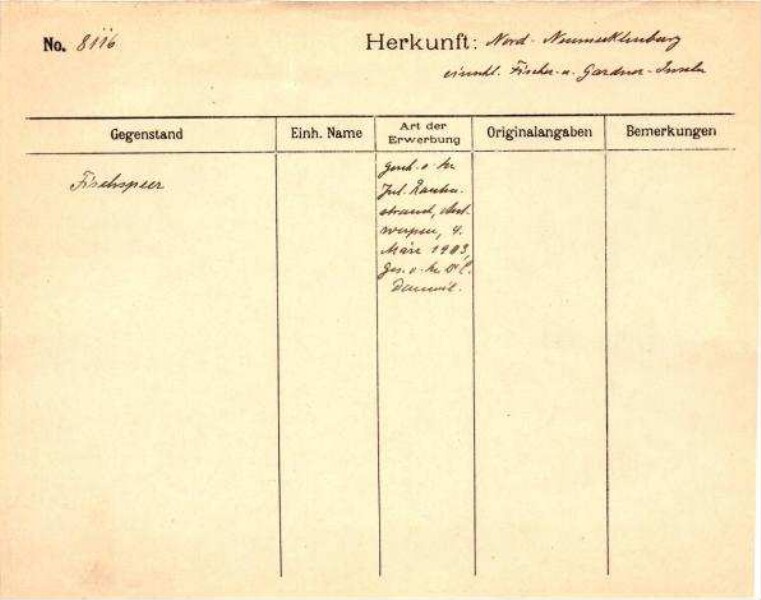 No. 8116 Herkunft: Nord-Neumecklenburg
einschl. Fischer- u. Gardner-Inseln
Gegenstand Einh. Name Art der Erwerbung Originalangaben Bemerkungen
Fischspeer
Gesch. v. Hr.
Jul.
strand, Ant-
werpen, 4.
März 1903,
Ges. v. Hr.